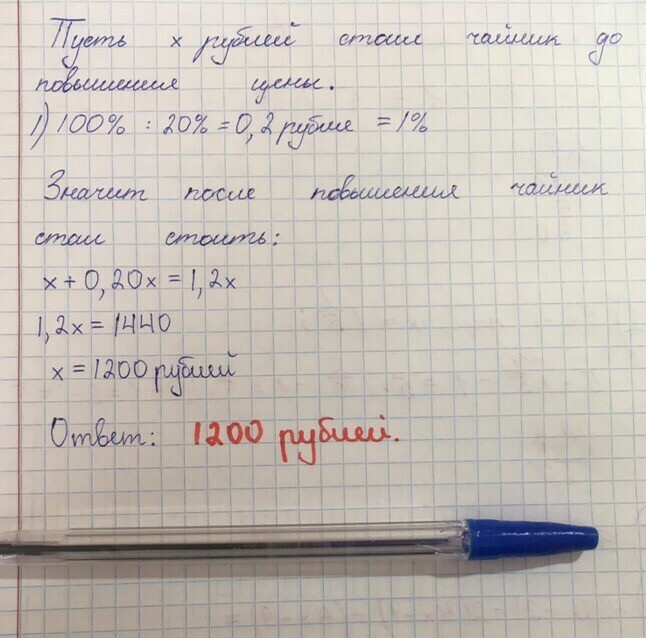 Пусть x рублей стоил чайник до
повышения цены.
1) 100% : 20% = 0,2 рубля = 1%
Значит после повышения чайник
стал стоить:
x + 0,20x = 1,2x
1,2x = 1440
x = 1200 рублей
Ответ: 1200 рублей.